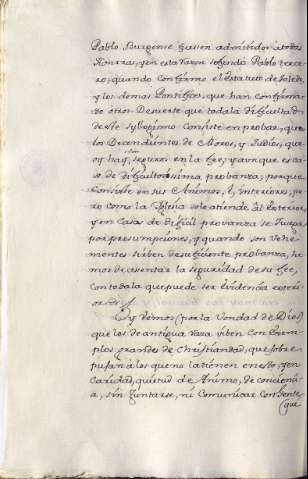 Pablo Burgense fuesen admitidos a todas
honrras, y en esta razon se fundó Pablo terce
ro, quando confirmo el estatuto de Toledo,
y los demas Pontifices, que han confirma
do otros. De suerte que toda la dificultad
deste sylogismo consiste en probar, que
los Decendientes de Moros, y Judios, que
oy hai, estan seguros en la fee, y aunque esta co
sa de dificultosissima probanza, porque
Consiste en sus Animos, è, interiores, pe
ro como la Iglesia solo atiende al exterior,
y en Casas de dificil provanza se Juzga
por presumpciones, y quando son vehe
mentes sirben de suficiente probanza, he
mos de asentar la seguridad de su fee,
con toda la que puede ser evidencia exteri
or
Oy Vemos (por la Vondad de Dios)
que los de antigua raza viben con exem
plos grandes de Christiandad, que sobre
pujan a los que no la tienen en esto, y en
caridad, quietud de Animo, de concienci
a, sin Juntarse, ni Comunicar con gente
que